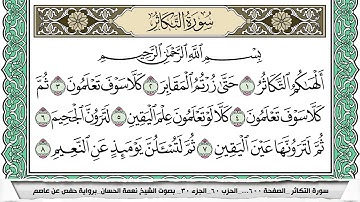 سورة التكاثر
بسم الله الرحمن الرحيم
ألهىكم التكاثر ١ حتى زرتم المقابر ٢ كلا سوف تعلمون ٣ ثم
كلا سوف تعلمون ٤ كلا لو تعلمون علم اليقين ٥ لترون الجحيم ٦
ثم لترونها عين اليقين ٧ ثم لتسـٔلن يومئذ عن النعيم ٨
سورة التكاثر_الصفحة ٦٠٠_ الحزب ٦٠_الجزء ٣٠_بصوت الشيخ نعمة الحسان_برواية حفص عن عاصم